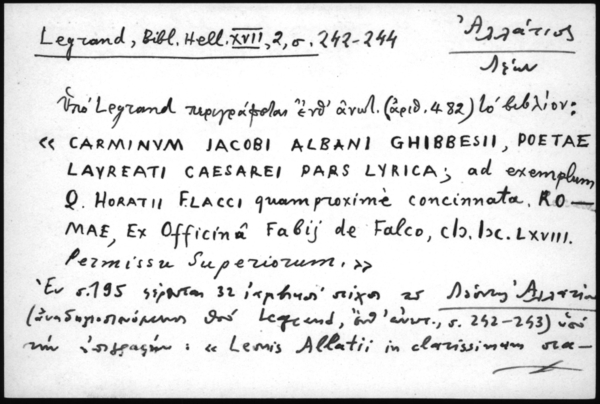 Legrand, Bibl. Hell. XVII, 2, σ. 242-244
Ἀλλάτιος
Λέων
Ὑπὸ Legrand περιγράφεται ἔνθ' ἀνωτ. (ἀριθ. 482) τὸ βιβλίον:
« CARMINVM JACOBI ALBANI GHIBBESII, POETAE
LAVREATI CAESAREI PARS LYRICA; ad exemplum
Q. HORATII FLACCI quamproximè concinnata. RO-
MAE, Ex Officinâ Fabij de Falco, cIɔ. Iɔc. LXVIII.
Permissu Superiorum. »
Ἐν σ. 195 φέρονται 32 στίχοι τοῦ Λέοντος Ἀλλατίου
(ἀναδημοσιευόμενοι ὑπὸ Legrand, ἔνθ' ἀνωτ., σ. 242-243) ὑπὸ
τὴν ἐπιγραφήν: « Leonis Allatii in clarissimum